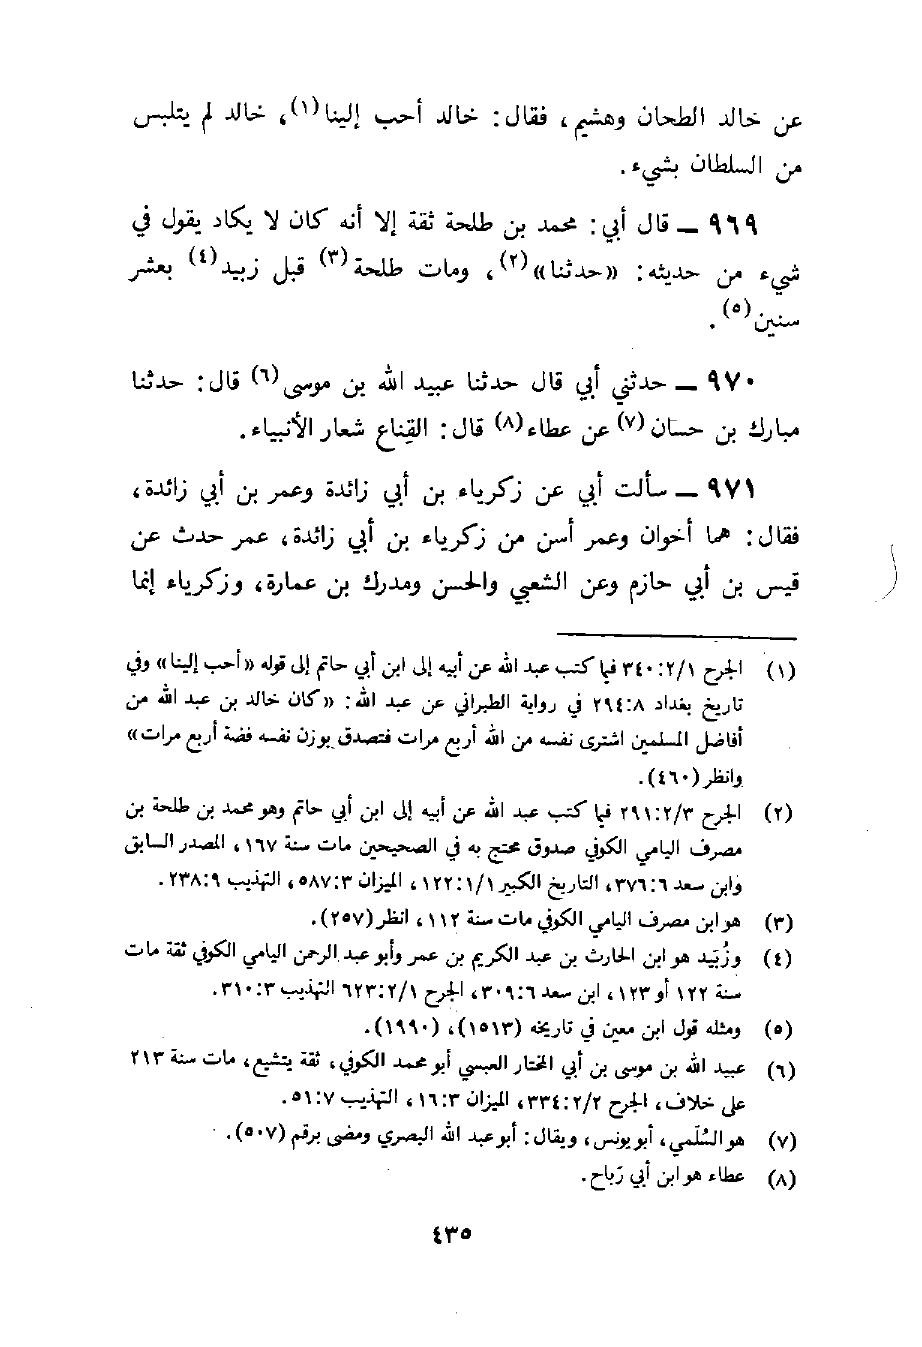 عن خالد الطحان وهشيم، فقال: خالد أحب إلينا(١)، خالد لم يتلبس
من السلطان بشيء.
٩٦٩ ــ قال أبي: محمد بن طلحة ثقة إلا أنه كان لا يكاد يقول في
شيء من حديثه: «حدثنا»(٢)، ومات طلحة(٣) قبل زبيد(٤) بعشر
سنين(٥).
٩٧٠ ــ حدثني أبي قال حدثنا عبيد الله بن موسى(٦) قال: حدثنا
مبارك بن حسان(٧) عن عطاء(٨) قال: القِناع شعار الأنبياء.
٩٧١ ــ سألت أبي عن زكرياء بن أبي زائدة وعمر بن أبي زائدة،
فقال: هما أخوان وعمر أسن من زكرياء بن أبي زائدة، عمر حدث عن
قيس بن أبي حازم وعن الشعبي والحسن ومدرك بن عمارة، وزكرياء إنما
(١) الجرح ٣٤٠:٢/١ فيما كتب عبد الله عن أبيه إلى ابن أبي حاتم إلى قوله «أحب إلينا» وفي
تاريخ بغداد ٢٩٤:٨ في رواية الطبراني عن عبد الله: «كان خالد بن عبد الله من
أفاضل المسلمين اشترى نفسه من الله أربع مرات فتصدق بوزن نفسه فضة أربع مرات»
وانظر (٤٦٠).
(٢) الجرح ٢٩١:٢/٣ فيما كتب عبد الله عن أبيه إلى ابن أبي حاتم وهو محمد بن طلحة بن
مصرف اليامي الكوفي صدوق محتج به في الصحيحين مات سنة ١٦٧، المصدر السابق
وابن سعد ٣٧٦:٦، التاريخ الكبير ١٢٢:١/١، الميزان ٥٨٧:٣، التهذيب ٢٣٨:٩.
(٣) هو ابن مصرف اليامي الكوفي مات سنة ١١٢، انظر (٢٥٧).
(٤) وزُبَيد هو ابن الحارث بن عبد الكريم بن عمر وأبو عبد الرحمن اليامي الكوفي ثقة مات
سنة ١٢٢ أو ١٢٣، ابن سعد ٣٠٩:٦، الجرح ٦٢٣:٢/١ التهذيب ٣١٠:٣.
(٥) ومثله قول ابن معين في تاريخه (١٥١٣)، (١٩٩٠).
(٦) عبيد الله بن موسى بن أبي المختار العبسي أبو محمد الكوفي، ثقة يتشيع، مات سنة ٢١٣
على خلاف، الجرح ٣٣٤:٢/٢، الميزان ١٦:٣، التهذيب ٥١:٧.
(٧) هو السُلَمي، أبو يونس، ويقال: أبو عبد الله البصري ومضى برقم (٥٠٧).
(٨) عطاء هو ابن أبي رَباح.
٤٣٥